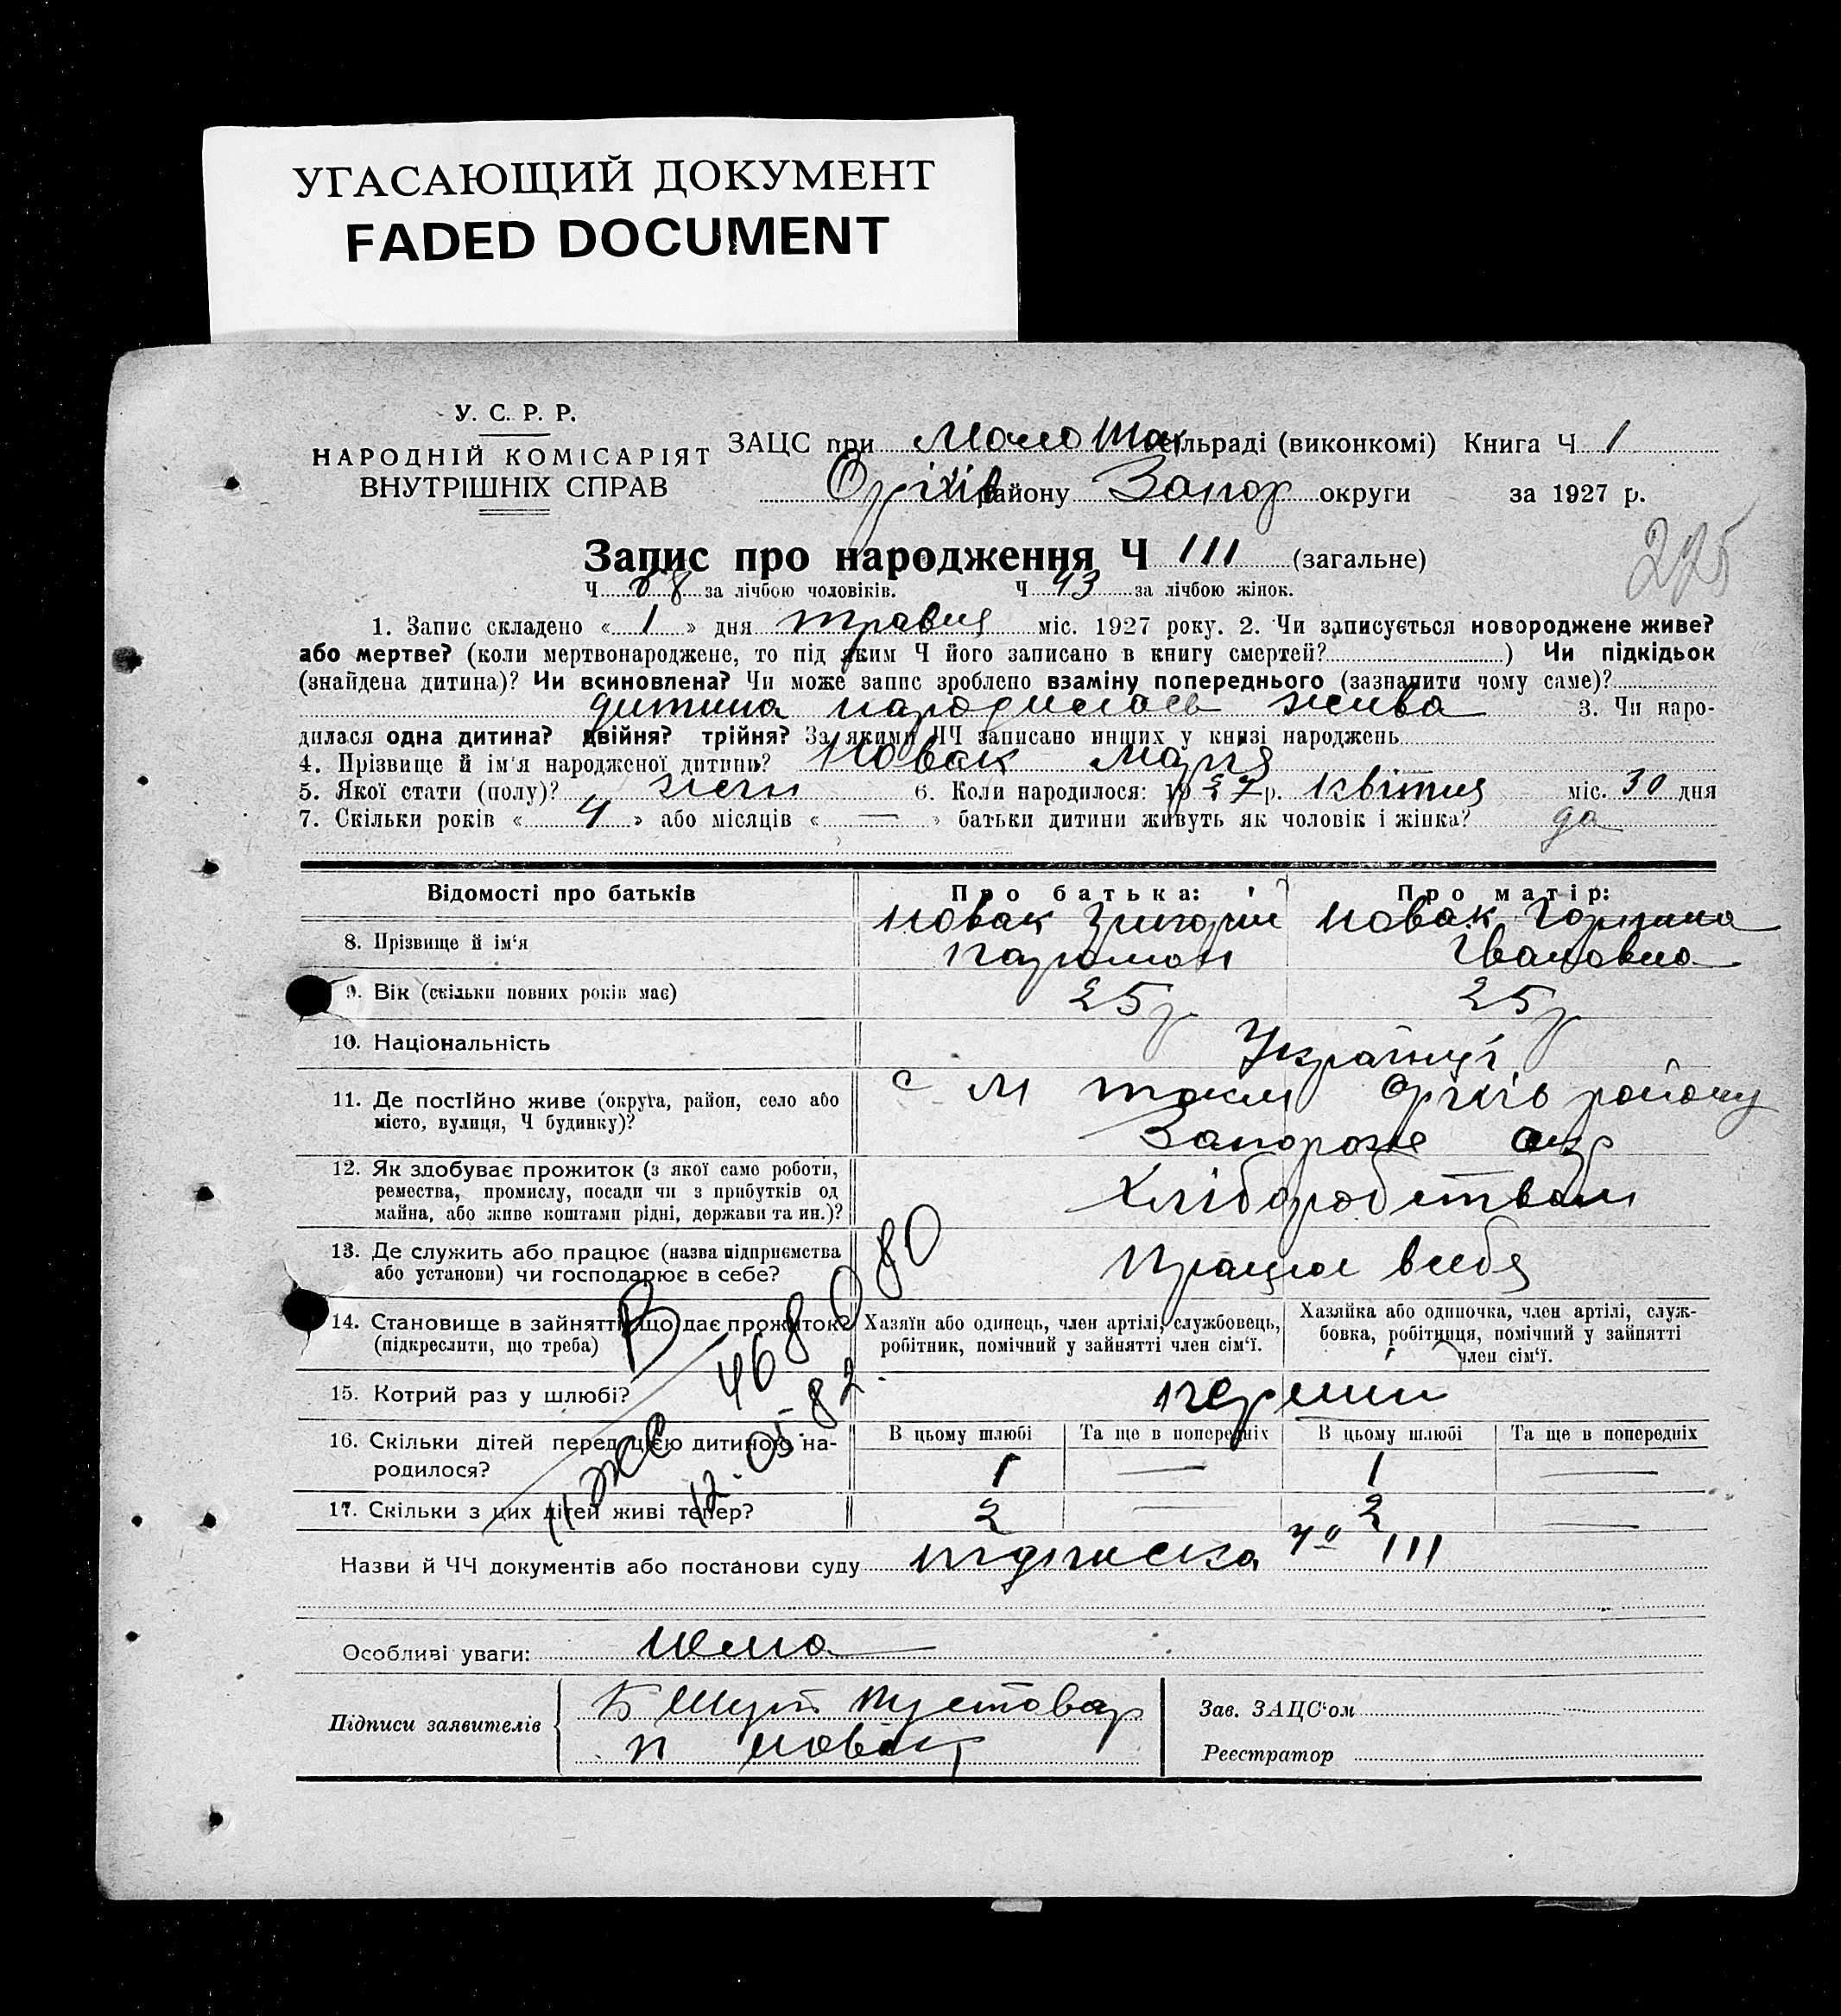 УГАСАЮЩИЙ ДОКУМЕНТ
FADED DOCUMENT
У. С. Р. Р.
НАРОДНІЙ КОМІСАРІЯТ
ВНУТРІШНІХ СПРАВ
ЗАЦС при Мало Ток сільраді (виконкомі) Книга Ч 1
Оріхів району Запор округи за 1927 р.
275
Запис про народження Ч 111 (загальне)
Ч 68 за лічбою чоловіків. Ч 43 за лічбою жінок.
1. Запис складено « 1 » дня травня міс. 1927 року. 2. Чи записується новороджене живе?
або мертве? (коли мертвонароджене, то під яким Ч його записано в книгу смертей? ) Чи підкідьок
(знайдена дитина)? Чи всиновлена? Чи може запис зроблено взаміну попереднього (зазначити чому саме)?
дитина народилась жива 3. Чи наро-
дилася одна дитина? двійня? трійня? За якими ЧЧ записано инших у книзі народжень
4. Прізвище й ім'я народженої дитини? Новак Марія
5. Якої стати (полу)? жен 6. Коли народилося: 1927 р. квітня міс. 30 дня
7. Скільки років « 4 » або місяців « — » батьки дитини живуть як чоловік і жінка? да
Відомості про батьків Про батька: Про матір:
8. Прізвище й ім'я Новак Григорій Новак Горпина
Івановна
9. Вік (скільки повних років має) 25 р 25 р
10. Національність Українці
11. Де постійно живе (округа, район, село або
місто, вулиця, Ч будинку)? с М Токм Оріхів району
Запорожс окр
12. Як здобуває прожиток (з якої само роботи,
ремества, промислу, посади чи з прибутків од
майна, або живе коштами рідні, держави та ин.)? Хліборобством
13. Де служить або працює (назва підприємства
або установи) чи господарює в себе? Працює в себя
14. Становище в зайнятті, що дає прожиток?
(підкреслити, що треба)
Хазяїн або одинець, член артілі, службовець,
робітник, помічний у зайнятті член сім'ї.
Хазяйка або одиночка, член артілі, служ-
бовка, робітниця, помічний у зайнятті
член сім'ї.
15. Котрий раз у шлюбі? перший
16. Скільки дітей перед цією дитиною на-
родилося?
В цьому шлюбі Та ще в попередніх В цьому шлюбі Та ще в попередніх
1 — 1 —
17. Скільки з цих дітей живі тепер? 2 — 2 —
12.05.82
Назви й ЧЧ документів або постанови суду підписка № 111
Особливі уваги: нема
Підписи заявителів
Пустовар
п Новак
Зав. ЗАЦС'ом
Реєстратор